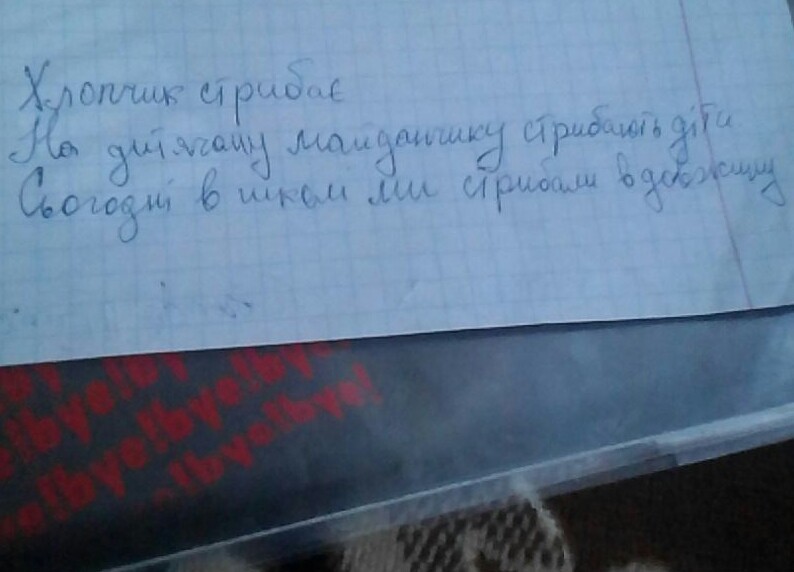 Хлопчик стрибає
На дитячому майданчику стрибають діти
Сьогодні в школі ми стрибали в довжину
bye!bye!bye!
!bye!bye!bye!bye!
!bye!bye!bye!
!bye!bye!